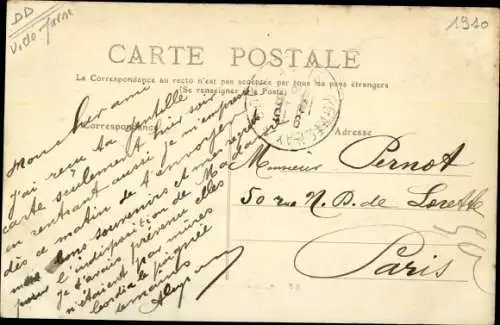 DD
V. de Marne
1910
CARTE POSTALE
La Correspondance au recto n'est pas acceptée par tous les pays étrangers
(Se renseigner à la Poste)
Correspondance
Adresse
Mon cher ami
J'ai reçu ta gentille
carte seulement hier soir
en rentrant aussi je m'empresse
dès ce matin de t'envoyer
mes bons souvenirs et mes regrets
pour l'indisposition de Madame
je t'avais prévenu elles
n'étaient pas mûres
Cordiale poignée
de mains
Monsieur Pernot
50 rue N. D. de Lorette
Paris